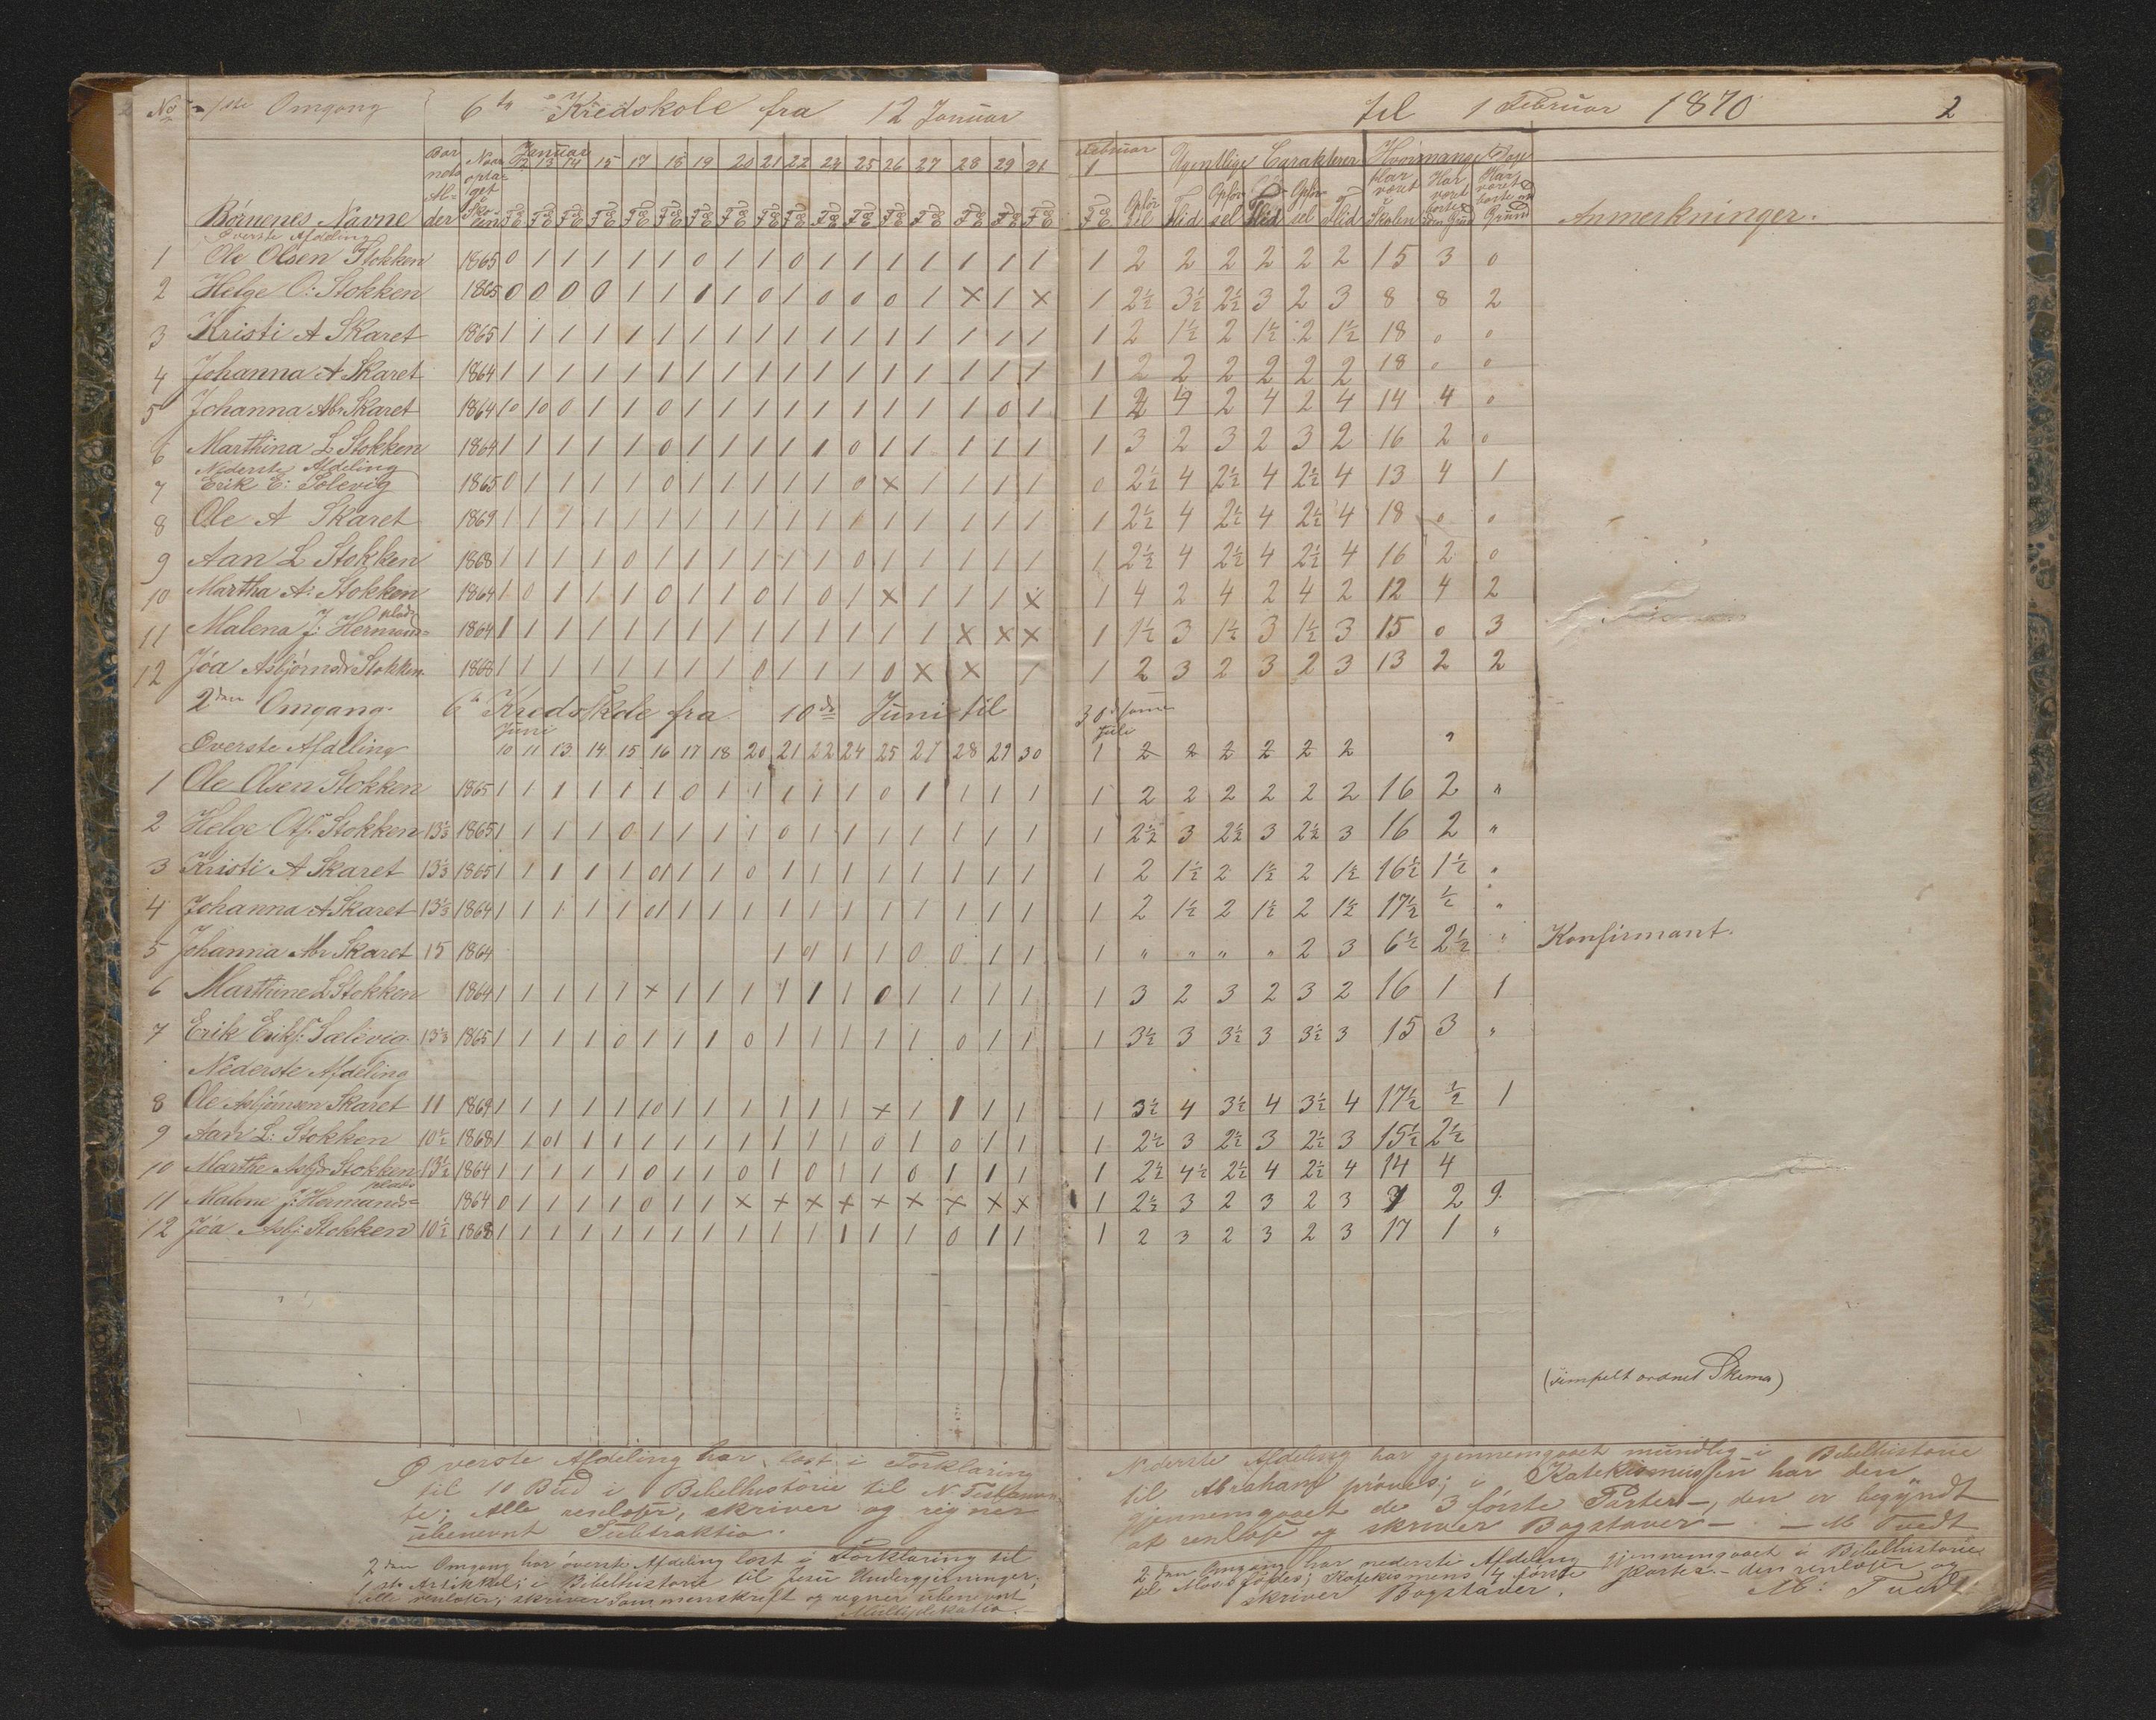 No 1ste Omgang 6te Kredskole fra 12 Januar til 1 Februar 1870 2
Januar Februar
Barnets Alder Naar optaget i Skolen 12 13 14 15 17 18 19 20 21 22 24 25 26 27 28 29 31 1 Ugentlige Carakterer Hvormange Dage
Børnenes Navne Opførsel Flid Opførsel Flid Opførsel Flid Har været i Skolen Har været borte uden Grund Har været borte med Grund Anmerkninger.
Øverste Afdeling
1 Ole Olsen Stokken 1865 0 1 1 1 1 1 0 1 1 0 1 1 1 1 1 1 1 1 2 2 2 2 2 2 15 3 0
2 Helge O: Stokken 1865 0 0 0 0 1 1 1 1 0 1 0 0 0 1 × 1 × 1 2½ 3½ 2½ 3 2 3 8 8 2
3 Kristi A Skaret 1865 1 1 1 1 1 1 1 1 1 1 1 1 1 1 1 1 1 1 2 1½ 2 1½ 2 1½ 18 0 0
4 Johanna A Skaret 1864 1 1 1 1 1 1 1 1 1 1 1 1 1 1 1 1 1 1 2 2 2 2 2 2 18 0 0
5 Johanna Abr Skaret 1864 10 10 0 1 1 0 1 1 1 1 1 1 1 1 1 0 1 1 2 4 2 4 2 4 14 4 0
6 Marthina L Stokken 1864 1 1 1 1 1 0 1 1 1 1 1 0 1 1 1 1 1 1 3 2 3 2 3 2 16 2 0
Nederste Afdeling
7 Erik E: Solevig 1865 0 1 1 1 1 0 1 1 1 1 1 0 × 1 1 1 1 0 2½ 4 2½ 4 2½ 4 13 4 1
8 Ole A Skaret 1869 1 1 1 1 1 1 1 1 1 1 1 1 1 1 1 1 1 1 2½ 4 2½ 4 2½ 4 18 0 0
9 Aan L Stokken 1868 1 1 1 1 0 1 1 1 1 1 1 0 1 1 1 1 1 1 2½ 4 2½ 4 2½ 4 16 2 0
10 Martha A: Stokken 1864 1 0 1 1 1 0 1 1 0 1 0 1 × 1 1 1 × 1 4 2 4 2 4 2 12 4 2
11 Malena J: Hermandsplads 1864 1 1 1 1 1 1 1 1 1 1 1 1 1 1 × × × 1 1½ 3 1½ 3 1½ 3 15 0 3
12 Jóa Asbjørnsdr Stokken 1868 1 1 1 1 1 1 1 1 0 1 1 1 0 × × 1 1 2 3 2 3 2 3 13 2 2
2den Omgang. 6te Kredskole fra 10de Juni til
Juni Juli
Øverste Afdeling 10 11 13 14 15 16 17 18 20 21 22 24 25 27 28 29 30 1 2 2 2 2 2 2 "
1 Ole Olsen Stokken 1865 1 1 1 1 1 1 0 1 1 1 1 1 0 1 1 1 1 1 2 2 2 2 2 2 16 2 "
2 Helge Olsf. Stokken 13⅓ 1865 1 1 1 1 0 1 1 1 1 0 1 1 1 1 1 1 1 1 2½ 3 2½ 3 2½ 3 16 2 "
3 Kristi A Skaret 13⅓ 1865 1 1 1 1 1 01 1 1 0 1 1 1 1 1 1 1 1 1 2 1½ 2 1½ 2 1½ 16½ 1½ "
4 Johanna A Skaret 13⅓ 1864 1 1 1 1 1 01 1 1 1 1 1 1 1 1 1 1 1 1 2 1½ 2 1½ 2 1½ 17½ ½ "
5 Johanna Abr Skaret 15 1864 1 01 1 1 0 0 1 1 1 " " " " 2 3 6½ 2½ " Konfirmant.
6 Marthine L Stokken 1864 1 1 1 1 1 × 1 1 1 1 1 1 0 1 1 1 1 1 3 2 3 2 3 2 16 1 1
7 Erik Eriks. Sælevig 13⅓ 1865 1 1 1 1 0 1 1 1 0 1 1 1 1 1 0 1 1 1 3½ 3 3½ 3 3½ 3 15 3 "
Nederste Afdeling
8 Ole Asbjørnsen Skaret 11 1869 1 1 1 1 1 10 1 1 1 1 1 1 × 1 1 1 1 1 3½ 4 3½ 4 3½ 4 17½ ½ 1
9 Aan L: Stokken 10½ 1868 1 1 01 1 1 1 1 1 1 1 1 1 0 1 0 1 1 1 2½ 3 2½ 3 2½ 3 15½ 2½
10 Marthe Asbjdr Stokken 13½ 1864 1 1 1 1 1 0 1 1 0 1 0 1 1 0 1 1 1 1 2½ 4½ 2½ 4 2½ 4 14 4
11 Malene J: Hermandsplads 1864 0 1 1 1 1 0 1 1 × × × × × × × × × 1 2½ 3 2 3 2 3 7 2 9
12 Jóa Asbj: Stokken 10½ 1868 1 1 1 1 1 1 1 1 1 1 1 1 1 1 0 1 1 1 2 3 2 3 2 3 17 1 "
(simpelt ordnet Skema)
Øverste Afdeling har læst i Forklaring
til 10 Bud i Bibelhistorie til N Testamente;
Alle renlæser, skriver og regner
ubenevnt Subtraktio.
2den Omgang har øverste Afdeling læst i Forklaring til
1ste Artikkel; i Bibelhistorie til Jesu Undergjerninger;
alle renlæser; skriver Sammenskrift og regner ubenevnt
Multiplikatio.
Nederste Afdeling har gjennemgaaet mundlig i Bibelhistorie
til Abraham prøves; i Katekismussen har den
gjennemgaaet de 3 første Parter –, den er begyndt
at renlæse og skriver Bogstaver – – M Tvedt
2den Omgang har nederste Afdeling gjennemgaaet i Bibelhistorie
til Mose fødes; Katekismens 4 første Parter. – den renlæser og
skriver Bogstaver. M: Tvedt